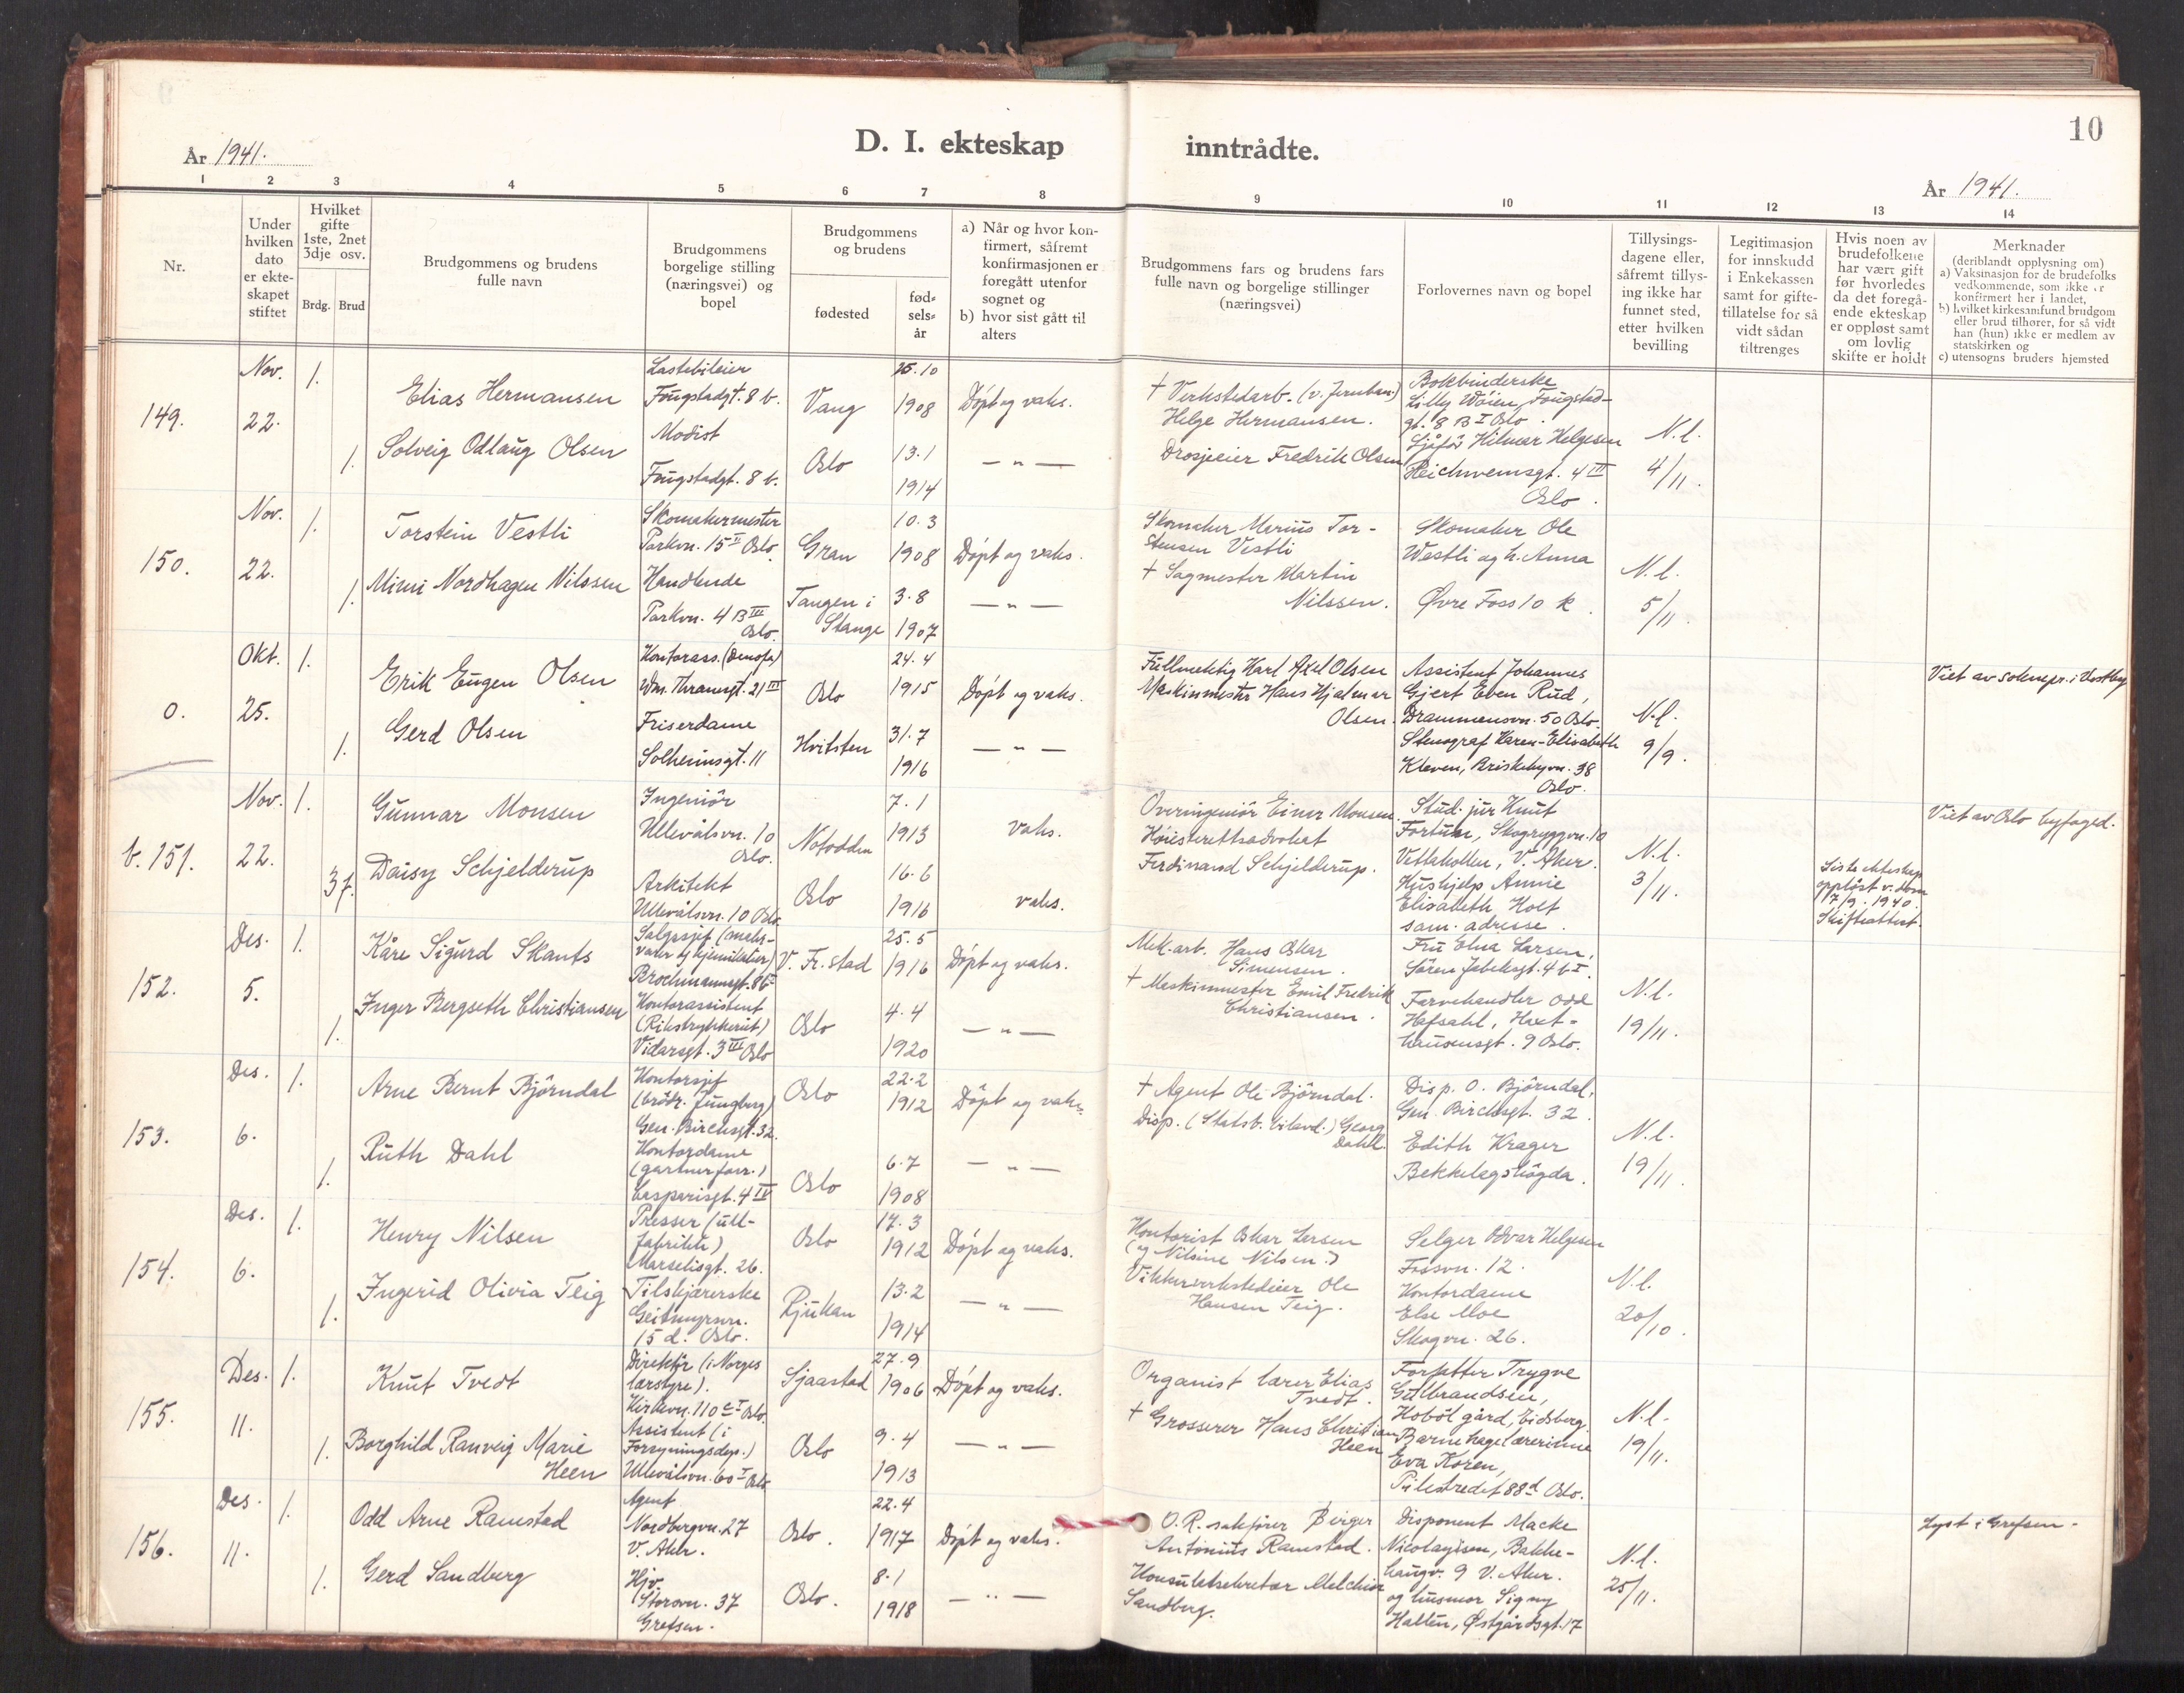 10
År 1941.
D. I. ekteskap inntrådte.
År 1941.
1 2 3 4 5 6 7 8 9 10 11 12 13 14
Nr.
Under hvilken dato er ekteskapet stiftet
Hvilket gifte 1ste, 2net 3dje osv.
Brdg. Brud
Brudgommens og brudens fulle navn
Brudgommens borgelige stilling (næringsvei) og bopel
Brudgommens og brudens
fødested
fødselsår
a) Når og hvor konfirmert, såfremt konfirmasjonen er foregått utenfor sognet og
b) hvor sist gått til alters
Brudgommens fars og brudens fars fulle navn og borgelige stillinger (næringsvei)
Forlovernes navn og bopel
Tillysingsdagene eller, såfremt tillysing ikke har funnet sted, etter hvilken bevilling
Legitimasjon for innskudd i Enkekassen samt for giftetillatelse for så vidt sådan tiltrenges
Hvis noen av brudefolkene har vært gift før hvorledes da det foregående ekteskap er oppløst samt om lovlig skifte er holdt
Merknader
(deriblandt opplysning om)
a) Vaksinasjon for de brudefolks vedkommende, som ikke er konfirmert her i landet,
b) hvilket kirkesamfund brudgom eller brud tilhører, for så vidt han (hun) ikke er medlem av statskirken og
c) utensogns bruders hjemsted
149.
Nov. 22.
1.
Elias Hermansen
Lastebileier
Fougstadgt. 8 b.
Vang
15.10
1908
Döpt og vaks.
† Verkstedarb. (v. Jernban.)
Helge Hermansen.
Bokbinderske
Lilly Wöien, Fougstad-
gt. 8 B I Oslo.
N.l.
4/11.
1.
Solveig Odlaug Olsen
Modist
Fougstadgt. 8 b.
Oslo
13.1
1914
— " —
Drosjeeier Fredrik Olsen
Sjåför Hilmar Helgesen
Reichweinsgt. 4 III
Oslo.
150.
Nov. 22.
1.
Torstein Vestli
Skomakermester
Parkvn. 15 II Oslo.
Gran
10.3
1908
Döpt og vaks.
Skomaker Marius Tor-
stensen Vestli
Skomaker Ole
Westli og h. Anna
Øvre Foss 10 k.
N.l.
5/11.
1.
Mimi Nordhagen Nilssen
Handlende
Parkvn. 4 B III
Oslo.
Tangen i
Stange
3.8
1907
— " —
† Sagmester Martin
Nilssen.
0.
Okt. 25.
1.
Erik Eugen Olsen
Kontorass. (Denofa)
Wm. Thranesgt. 21 III
Oslo
24.4
1915
Döpt og vaks.
Fullmektig Karl Axel Olsen
Assistent Johannes
Gjert Even Rud,
Drammensvn. 50 Oslo.
N.l.
9/9.
Viet av soknepr. i Vestby
1.
Gerd Olsen
Friserdame
Solheimsgt. 11
Hvitsten
31.7
1916
— " —
Maskinmester Hans Hjalmar
Olsen.
Stenograf Karen-Elisabeth
Kleven, Briskebyvn. 38
Oslo.
b. 151.
Nov. 22.
1.
Gunnar Monsen
Ingeniör
Ullevålsvn. 10
Oslo.
Notodden
7.1
1913
vaks.
Overingeniör Einar Monsen.
Stud. jur Knut
Fortun, Skogryggvn. 10
Vettakollen, V. Aker.
N.l.
3/11.
Viet av Oslo byfoged.
Daisy Schjelderup
Arkitekt
Ullevålsvn. 10 Oslo
Oslo
16.6
1916
vaks.
Höiesterettsadvokat
Ferdinand Schjelderup.
Hushjelp Annie
Elisabeth Holt
sam. adresse.
Siste ekteskap
opplöst v. dom
17/9. 1940.
Skifteattest.
152.
Des. 5.
1.
Kåre Sigurd Skants
V. Fr.stad
25.5
1916
Döpt og vaks.
Mek. arb. Hans Oskar
Simensen.
Fru Elna Larsen,
Sören Jabeksgt. 4 b I.
N.l.
19/11.
1.
Inger Bergseth Christiansen
Kontorassistent
(Rikstrykkeriet)
Vidarsgt. 3 III Oslo
Oslo
4.4
1920
— " —
† Maskinmester Emil Fredrik
Christiansen.
Farvehandler Odd
Hafsahl, Haxt-
hausensgt. 9 Oslo.
153.
Des. 6.
1.
Arne Bernt Björndal
Kontorsjef
(brödr. Jungberg)
Gen. Birchsgt. 32.
Oslo
22.2
1912
Döpt og vaks.
† Agent Ole Björndal.
Disp. O. Björndal,
Gen. Birchsgt. 32.
N.l.
19/11.
1.
Ruth Dahl
Kontordame
(gartnerforr.)
Casparisgt. 4 IV
Oslo
6.7
1908
— " —
Disp. (Statsb. bilavd.) Georg
Dahl.
Edith Krager
Bekkelagshögda.
154.
Des. 6.
1.
Henry Nilsen
Presser (ull-
fabrikk)
Marselisgt. 26.
Oslo
17.3
1912
Döpt og vaks.
Kontorist Oskar Larsen
(og Nilsine Nilsen.)
Selger Odvar Helgesen
Fossvn. 12.
N.l.
20/10.
1.
Ingerid Olivia Teig
Tilskjærerske
Geitmyrsvn.
15 d. Oslo.
Rjukan
13.2
1914
— " —
Hansen Teig.
Kontordame
Else Moe
Skogvn. 26.
155.
Des. 11.
1.
Knut Tvedt
Direktör (i Norges
lærstyre).
Kirkevn. 110 c I Oslo.
Sjaastad
27.9
1906
Döpt og vaks.
Organist lærer Elias
Tvedt.
Forfatter Trygve
Gulbrandsen,
Hoböl gård, Eidsberg.
N.l.
19/11.
1.
Borghild Ranveig Marie
Heen
Assistent (i
Forsyningsdep.)
Ullevålsvn. 60 I Oslo
Oslo
9.4
1913
— " —
† Grosserer Hans Christian
Heen
Barnehagelærerinne
Eva Koren,
Pilestredet 88 d Oslo.
156.
Des. 11.
1.
Odd Arne Ramstad
Agent
Nordbergvn. 27
V. Aker.
Oslo.
22.4
1917
Döpt og vaks.
O.R. sakförer Birger
Antonius Ramstad.
Disponent Macke
Nicolaysen, Bakke-
haugv. 9 V. Aker.
N.l.
25/11.
Lyst i Grefsen.
1.
Gerd Sandberg
Hjv.
Storovn. 37
Grefsen.
Oslo.
8.1
1918
— " —
Konsulatsekretær Melchior
Sandberg.
og husmor Signy
Halten, Østgårdsgt. 17